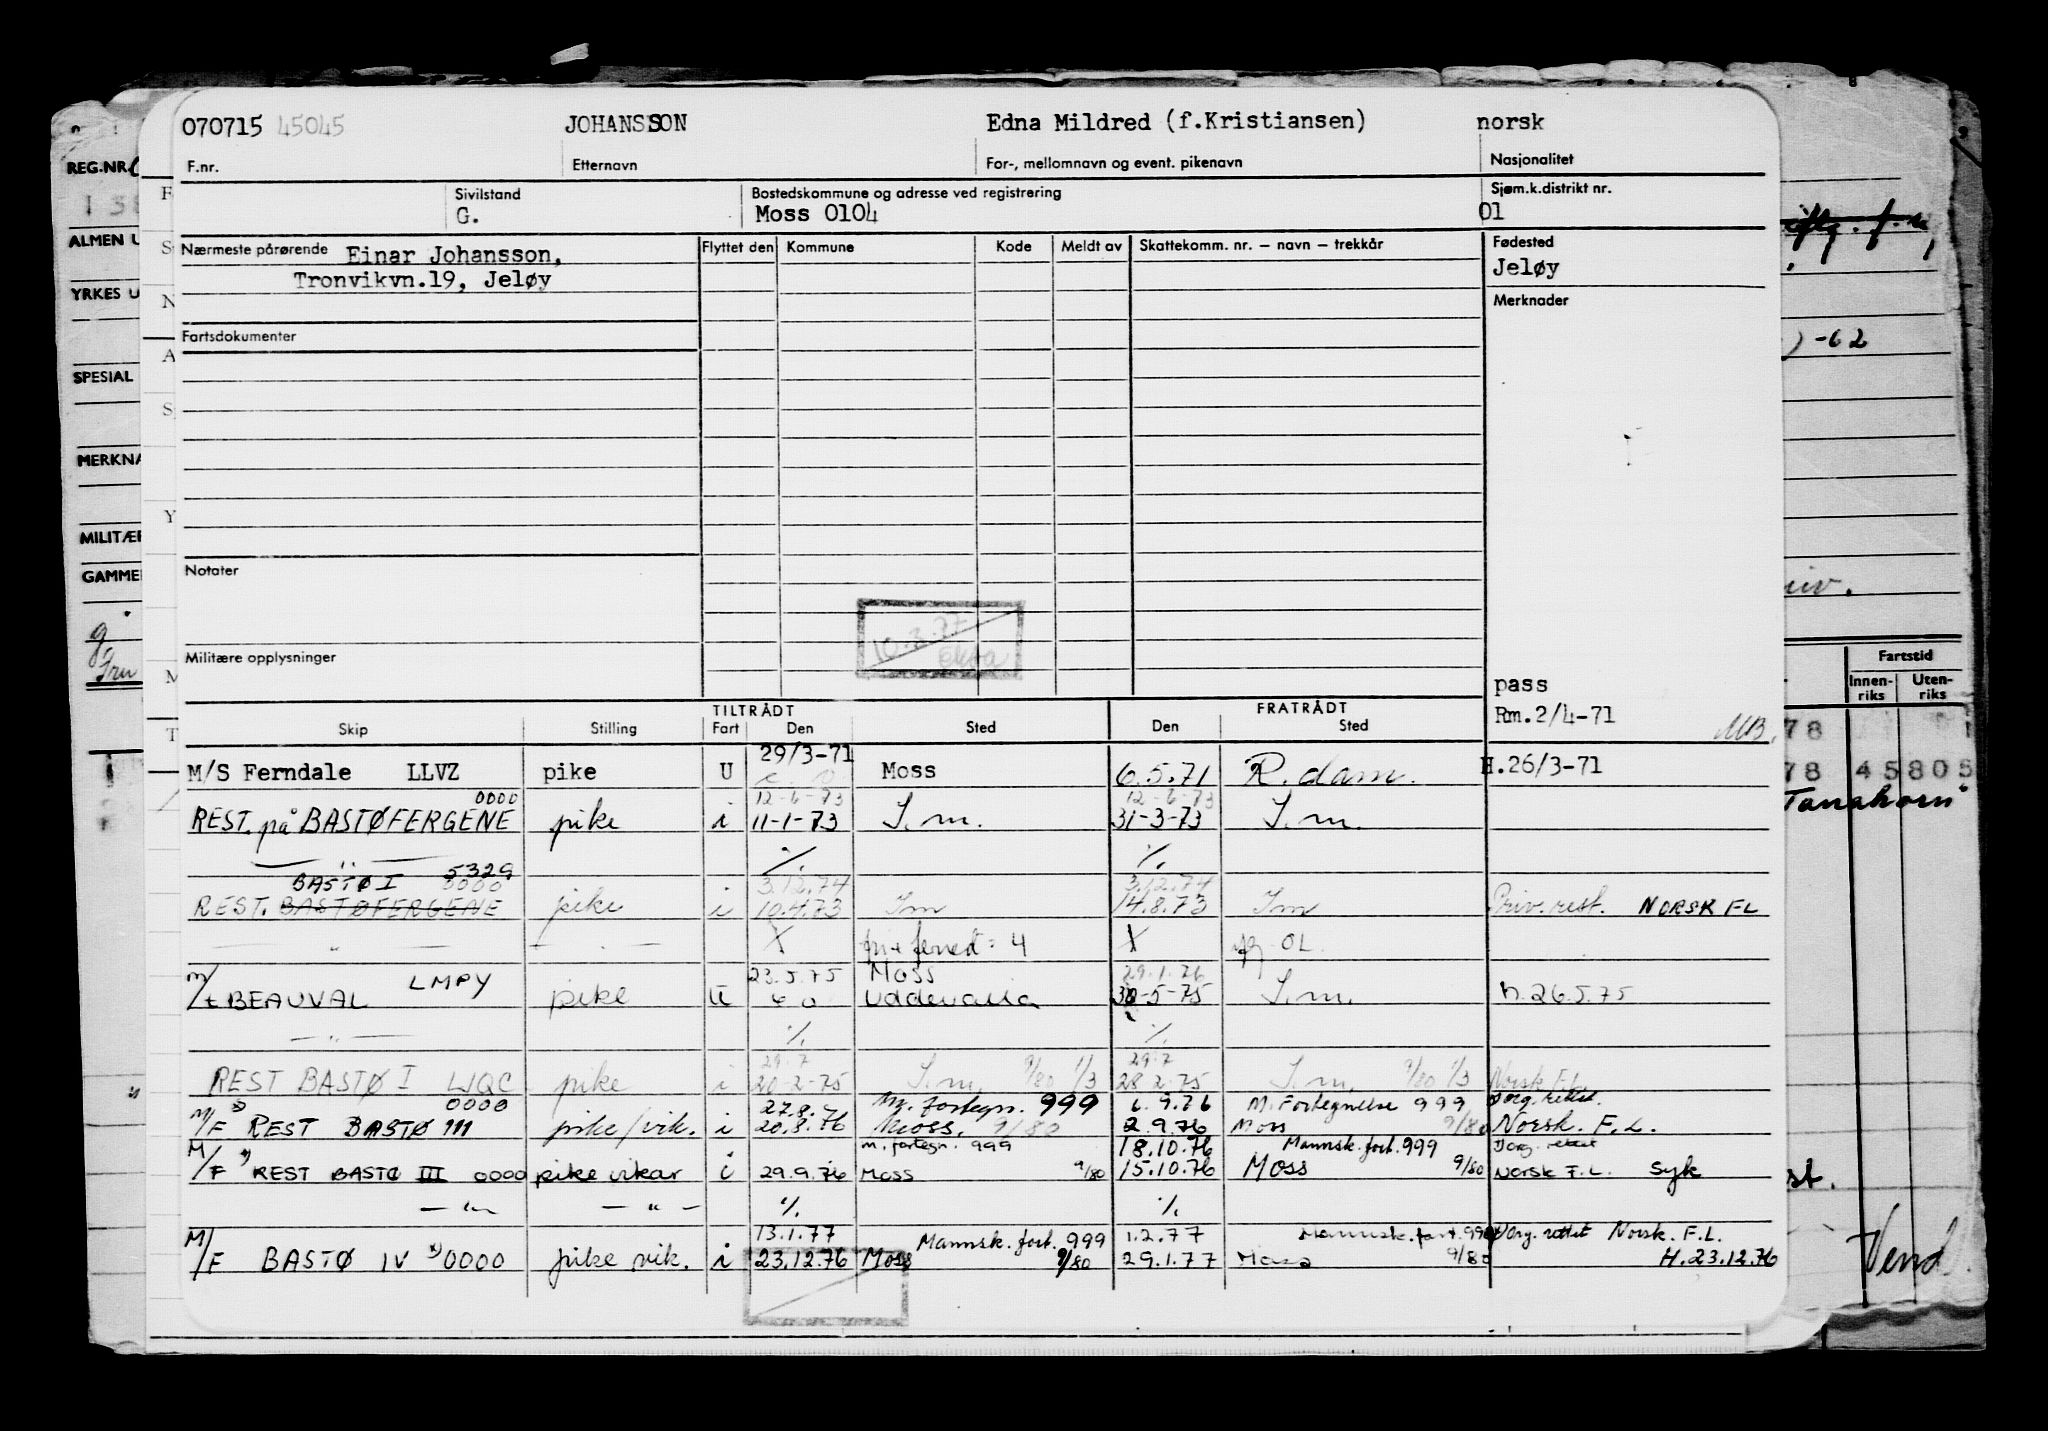 070715 45045 JOHANSSON Edna Mildred (f.Kristiansen) norsk
F.nr. Etternavn For-, mellomnavn og event. pikenavn Nasjonalitet
Sivilstand Bostedskommune og adresse ved registrering Sjøm.k.distrikt nr.
G. Moss 0104 01
Nærmeste pårørende Einar Johansson, Flyttet den Kommune Kode Meldt av Skattekomm. nr. – navn – trekkår Fødested
Tronvikvn.19, Jeløy Jeløy
Merknader
Fartsdokumenter
Notater
10.3.77
Militære opplysninger
pass
Rm.2/4-71 MB.
TILTRÅDT FRATRÅDT
Skip Stilling Fart Den Sted Den Sted
29/3-71
M/S Ferndale LLVZ pike U Moss 6.5.71 R.dam. H.26/3-71
0000 12-6-73 12-6-73
REST. på BASTØFERGENE pike i 11-1-73 I.m. 31-3-73 I.m.
— " — % %
BASTØ I 5329 0000 3.12.74 3.12.74
REST. BASTØFERGENE pike i 10.4.73 Im 14.8.73 Im Priv. rest. NORSK FL
— " — — " — X 4 X OL.
LMPY 23.5.75 Moss 29.1.76
M/t BEAUVAL pike U Uddevalla 30-5-75 I.m. h.26.5.75
— " — % %
29.7 29.7
REST BASTØ I LJQC pike i 20-2-75 I.m. 9/80 1/3 28.2.75 I.m. 9/80 1/3 Norsk F.L.
0000 27.8. M. fortegn. 999 6.9.76 M. Fortegnelse 999 Dorg. rettet
M/F REST BASTØ III pike/vik. i 20.8.76 Moss. 9/80 2.9.76 Moss 9/80 Norsk. F.L.
m. fortegn. 999 18.10.76 Mannsk. fort. 999 Dorg. rettet
M/F REST BASTØ III 0000 pike vikar i 29.9.76 Moss 9/80 15.10.76 Moss 9/80 Norsk F.L. Syk
— " — — " — % %
13.1.77 Mannsk. fort. 999 1.2.77 Mannsk. fort. 999 Dorg. rettet Norsk. F.L.
M/F BASTØ IV 0000 pike vik. i 23.12.76 Moss 9/80 29.1.77 Moss 9/80 H.23.12.76
REG.NR.
ALMEN U
YRKES U
SPESIAL
MERKNA
MILITÆR
GAMMEL
-62
Fartstid
Innen-riks Uten-riks
78
78 45805
"Tanahorn"
Vend